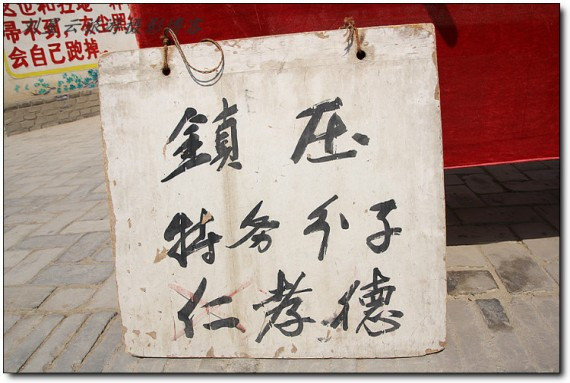 帚不到，灰尘照
会自己跑掉。
鎮压
特务分子
仁孝德